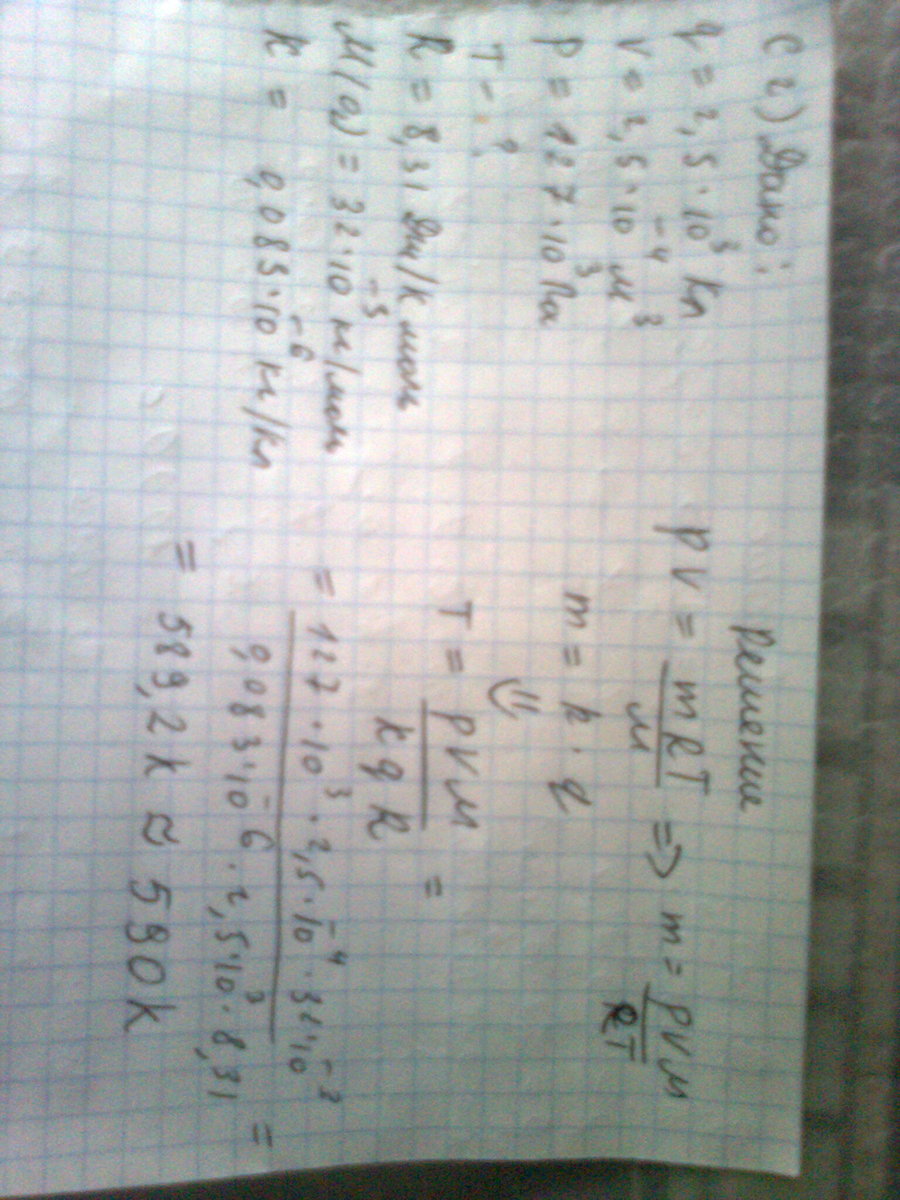 С 2) Дано:
q = 2,5·10³ Кл
V = 2,5·10⁻⁴ м³
p = 127·10³ Па
T - ?
R = 8,31 Дж/К моль
M(O₂) = 32·10⁻³ кг/моль
k = 0,083·10⁻⁶ кг/Кл
Решение
pV = mRT/M => m = pVM/RT
m = k·q
⇓
T = pVM/kqR =
= 127·10³·2,5·10⁻⁴·32·10⁻³/0,083·10⁻⁶·2,5·10³·8,31 =
= 589,2 K ≈ 590 K